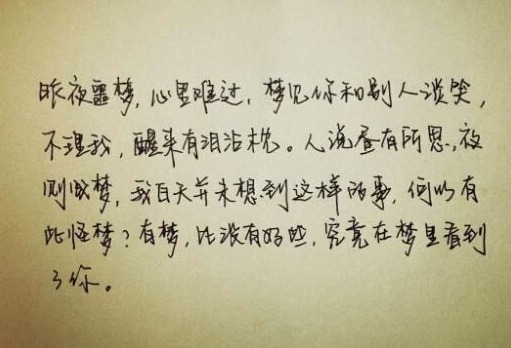 昨夜噩梦，心里难过，梦见你和别人谈笑，
不理我，醒来有泪沾枕。人说昼有所思，夜
则做梦，我白天并未想到这样的事，何以有
此怪梦？有梦，比没有好些，究竟在梦里看到
了你。